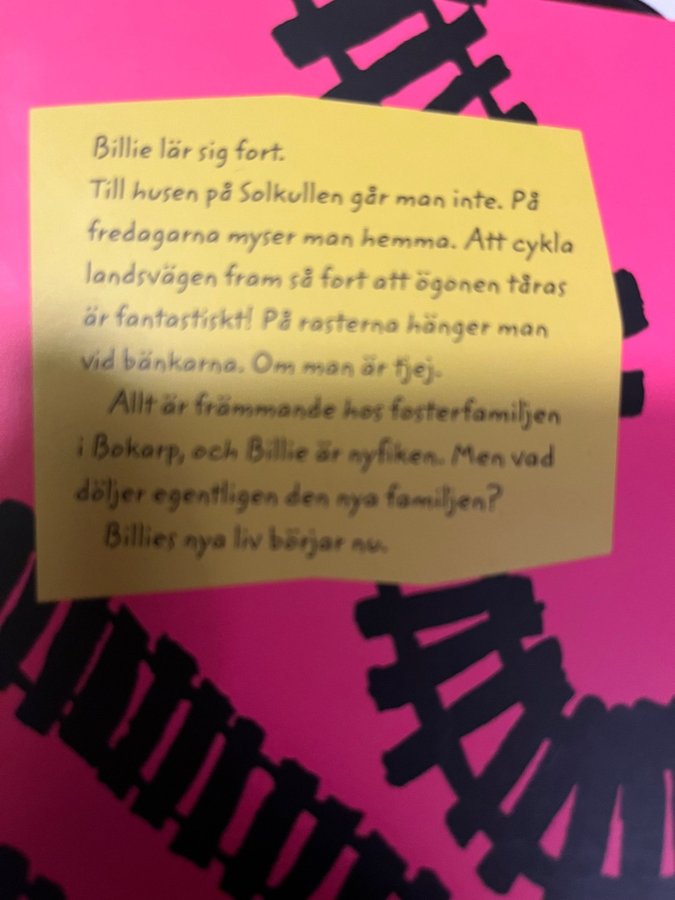 Billie lär sig fort.
Till husen på Solkullen går man inte. På
fredagarna myser man hemma. Att cykla
landsvägen fram så fort att ögonen tåras
är fantastiskt! På rasterna hänger man
vid bänkarna. Om man är tjej.
Allt är främmande hos fosterfamiljen
i Bokarp, och Billie är nyfiken. Men vad
döljer egentligen den nya familjen?
Billies nya liv börjar nu.